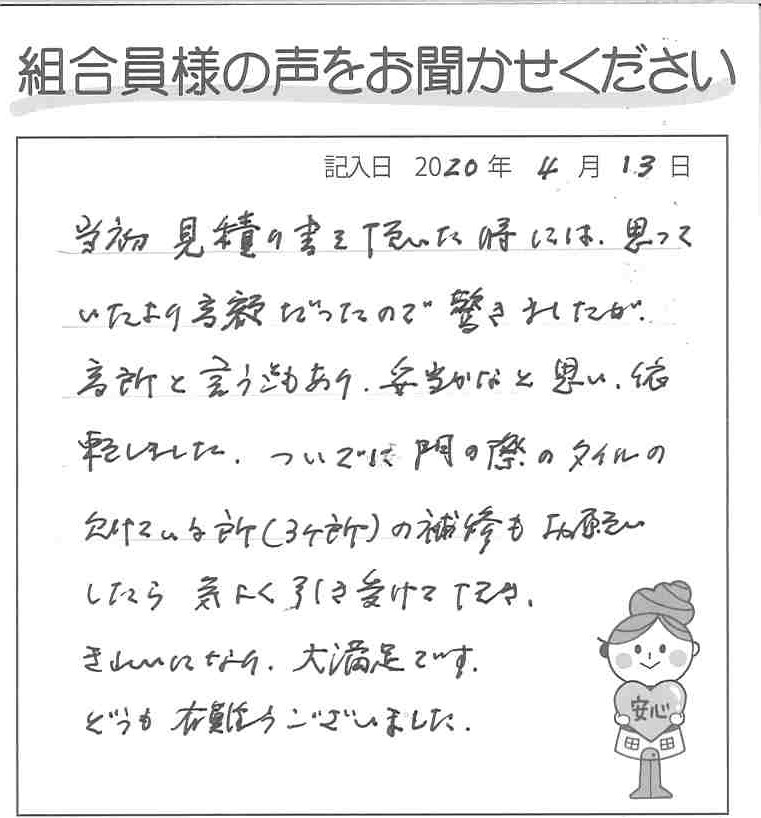 組合員様の声をお聞かせください
記入日 2020年 4月 13日
当初 見積り書を頂いた時には、思って
いたより高額だったので驚きましたが、
高所と言う事もあり、妥当かなと思い、依
頼しました。ついでに門の際のタイルの
欠けている所(3ケ所)の補修もお願い
したら 気よく引き受けて頂き、
きれいになり、大満足です。
どうも有難うございました。
安心